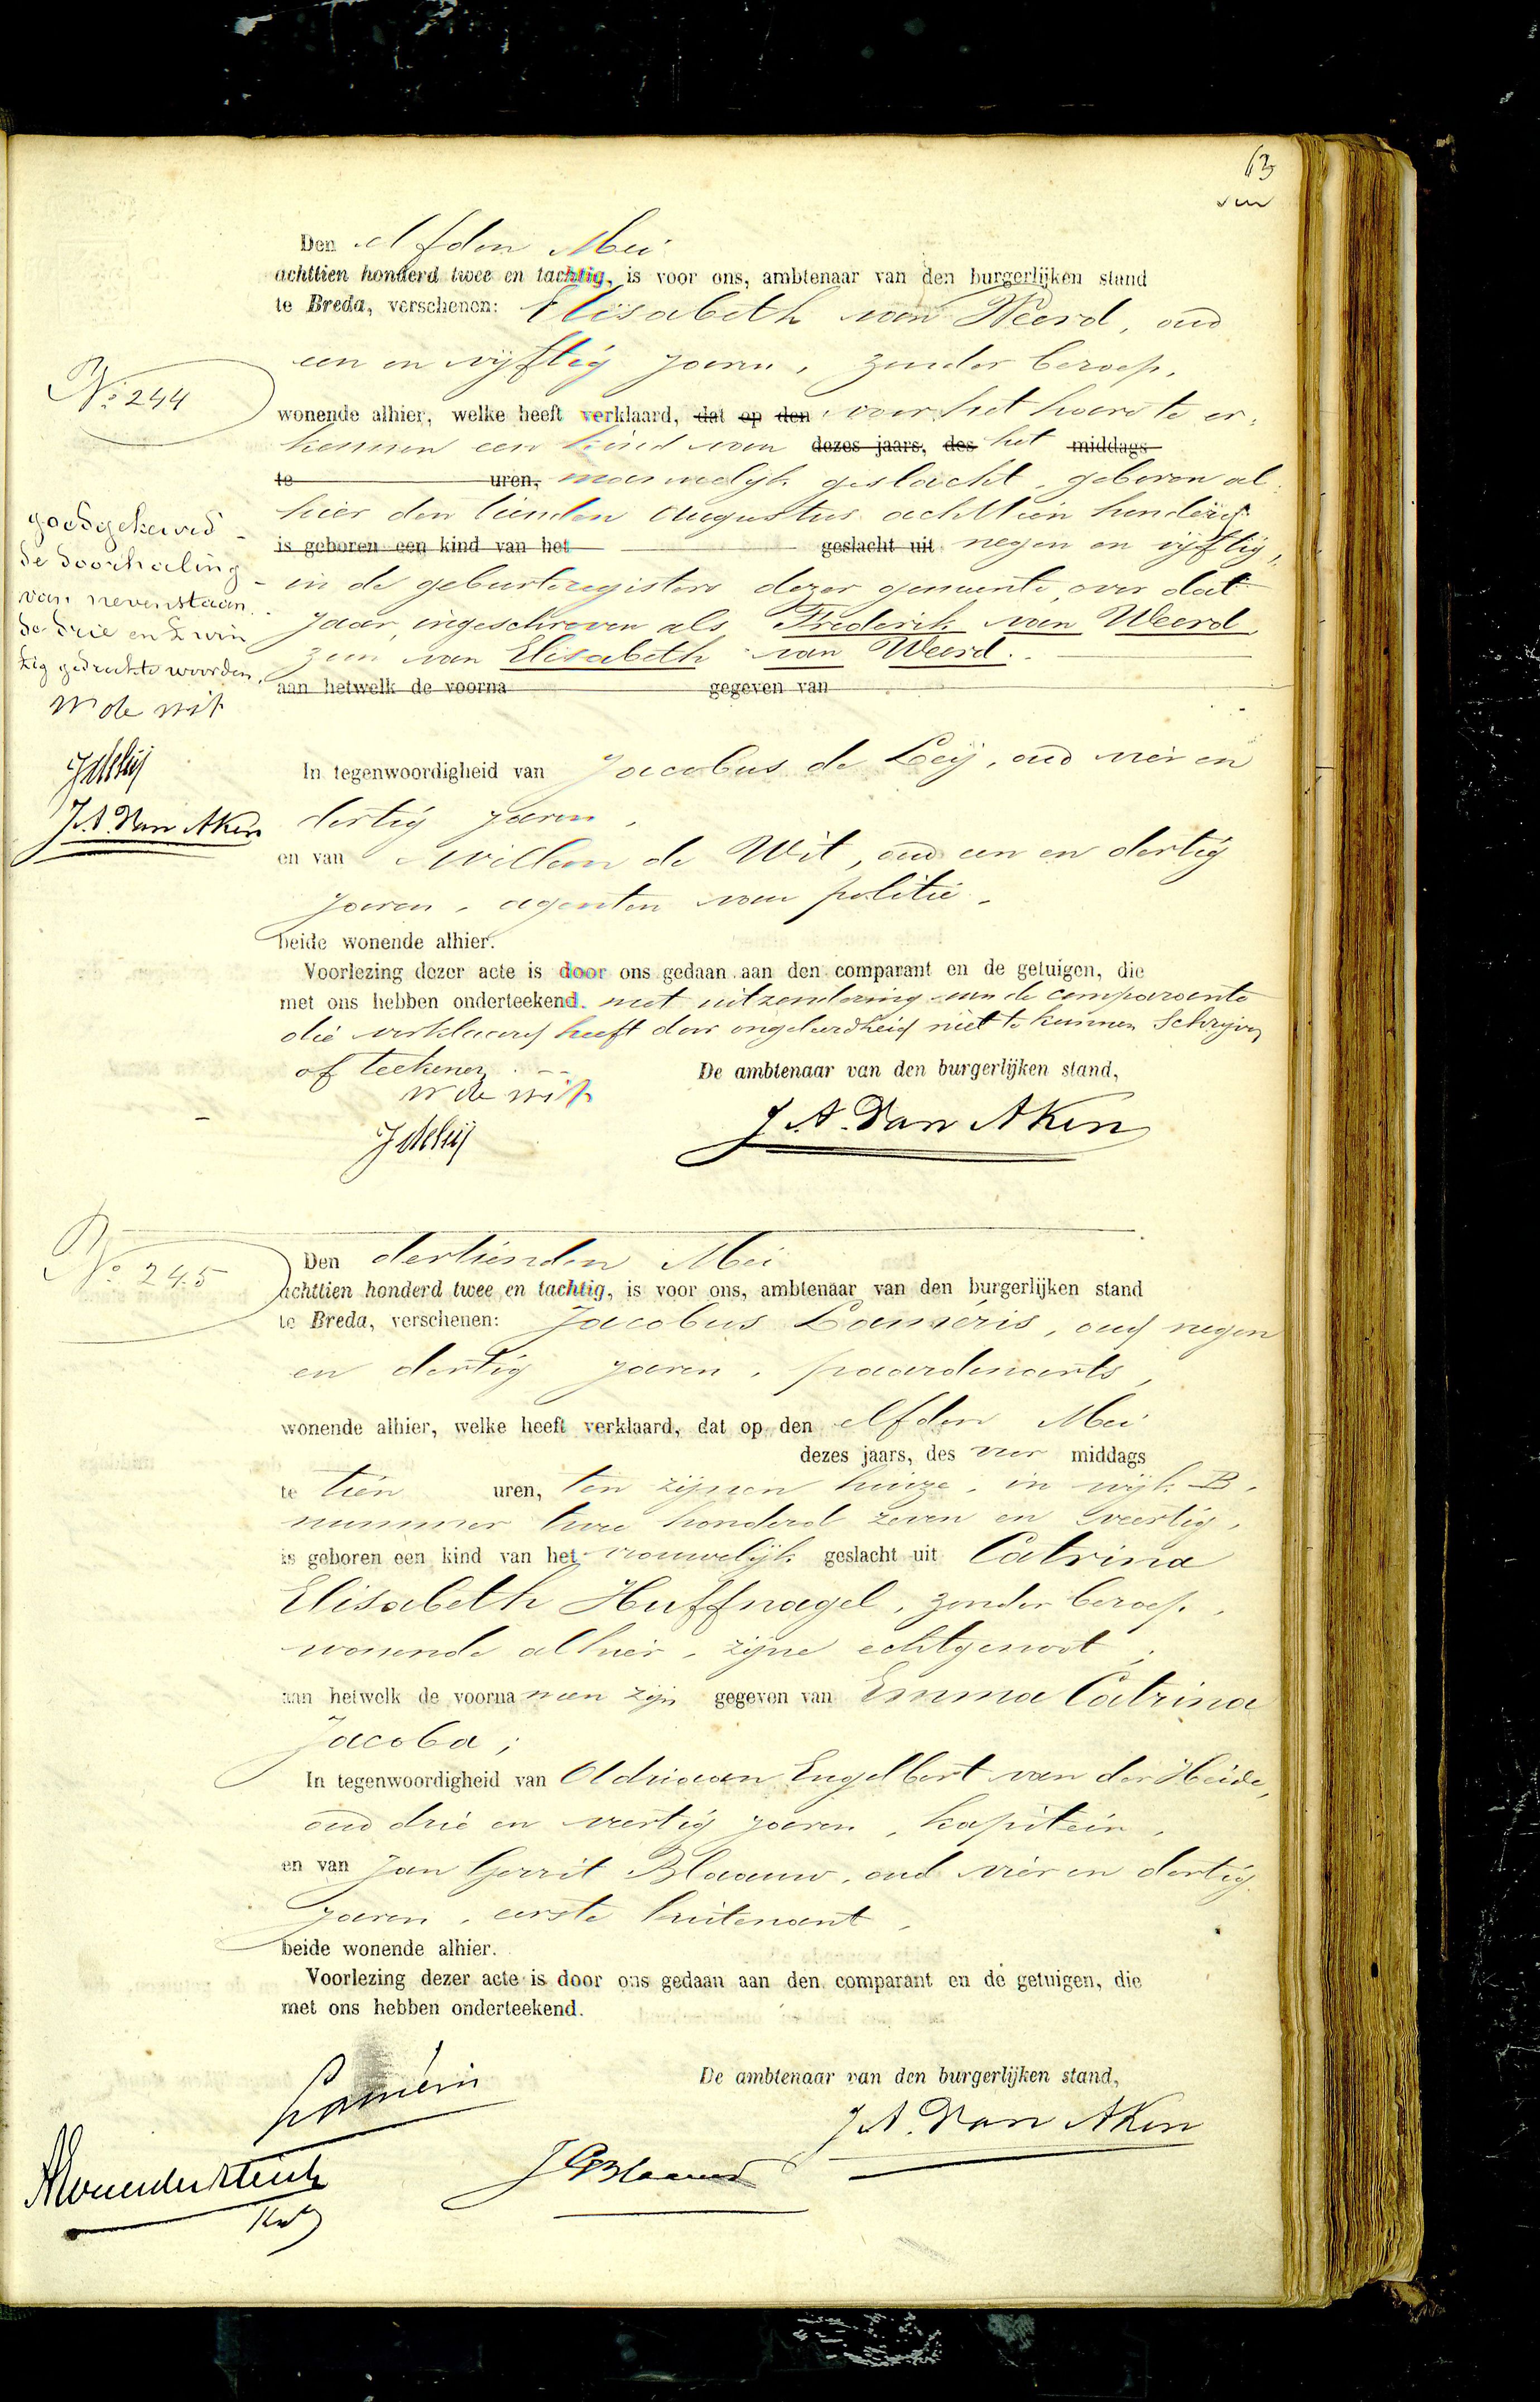 63
Den elfden Mei
achttien honderd twee en tachtig, is voor ons, ambtenaar van den burgerlijken stand
te Breda, verschenen: Elisabeth van Weerd, oud
een en vijftig jaren, zonder beroep,
No. 244
wonende alhier, welke heeft verklaard, dat op den voor het hare te er-
kennen een kind van dezes jaars, des het middags
te uren, mannelijk geslacht, geboren al-
hier den tienden Augustus achttien honderd
is geboren een kind van het geslacht uit negen en vijftig,
in de geboorteregisters dezer gemeente, over dat
jaar, ingeschreven als Frederik van Weerd,
zoon van Elisabeth van Weerd.
aan hetwelk de voorna gegeven van
goedgekeurd
de doorhaling
van nevenstaan-
de drie en twin-
tig gedrukte woorden.
W de Wit
J de Leij
J. A. Van Aken
In tegenwoordigheid van Jacobus de Leij, oud vier en
dertig jaren,
en van Willem de Wit, oud een en dertig
jaren, agenten van politie,
beide wonende alhier.
Voorlezing dezer acte is door ons gedaan aan den comparant en de getuigen, die
met ons hebben onderteekend. met uitzondering van de comparante
die verklaard heeft door ongeleerdheid niet te kunnen schrijven
of teekenen
De ambtenaar van den burgerlijken stand,
W de Wit
J. A. Van Aken
J de Leij
No. 245
Den dertienden Mei
achttien honderd twee en tachtig, is voor ons, ambtenaar van den burgerlijken stand
te Breda, verschenen: Jacobus Laméris, oud negen
en dertig jaren, paardenarts,
wonende alhier, welke heeft verklaard, dat op den elfden Mei
dezes jaars, des voor middags
te tien uren, ten zijnen huize, in wijk B,
nummer twee honderd zeven en veertig,
is geboren een kind van het vrouwelijk geslacht uit Catrina
Elisabeth Huffnagel, zonder beroep,
wonende alhier, zijne echtgenoot,
aan hetwelk de voornamen zijn gegeven van Emma Catrina
Jacoba;
In tegenwoordigheid van Adriaan Engelbert van der Heide,
oud drie en veertig jaren, kapitein,
en van Jan Gerrit Blaauw, oud vier en dertig
jaren, eerste luitenant,
beide wonende alhier.
Voorlezing dezer acte is door ons gedaan aan den comparant en de getuigen, die
met ons hebben onderteekend.
De ambtenaar van den burgerlijken stand,
Laméris
J. A. Van Aken
J G Blaauw